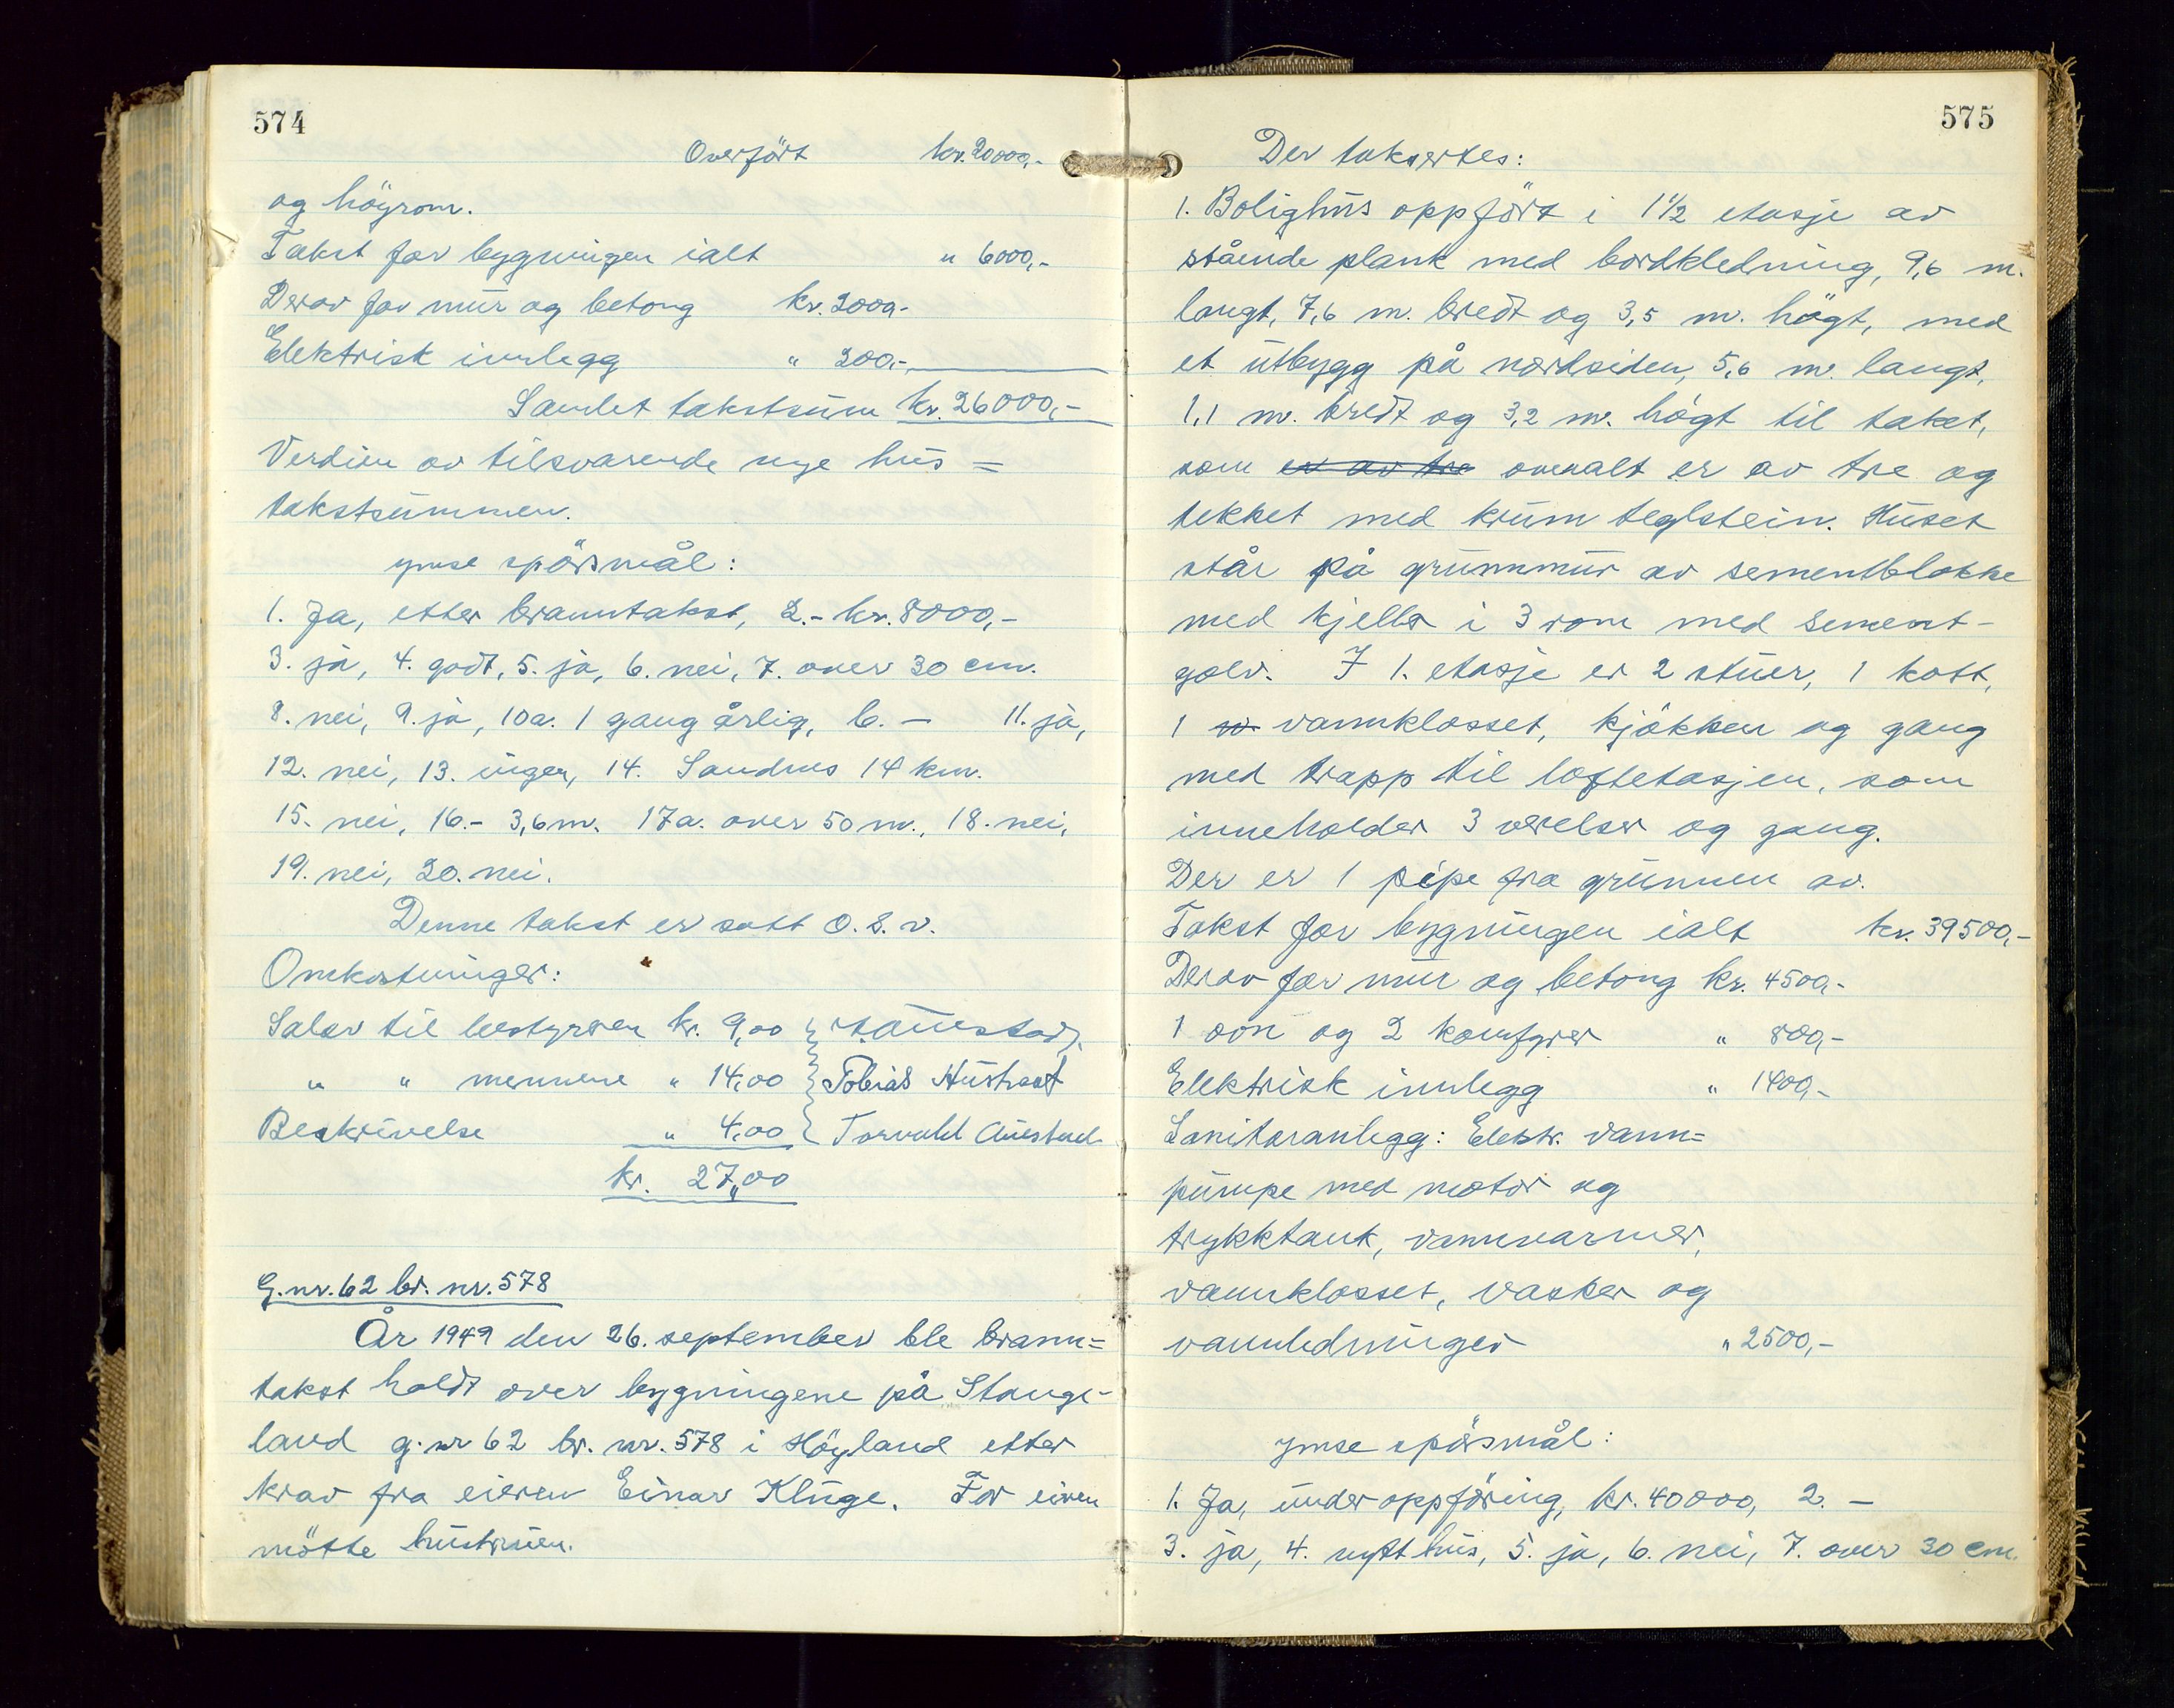 574
Overfört kr. 20000,-
og höyrom.
Takst for bygningen ialt " 6000,-
Derav for mur og betong kr. 2000,-
Elektrisk innlegg " 200,-
Samlet takstsum kr. 26000,-
Verdien av tilsvarende nye hus =
takstsummen.
ymse spörsmål:
1. Ja, etter branntakst, 2.- kr. 8000,-
3. ja, 4. godt, 5. ja, 6. nei, 7. over 30 cm.
8. nei, 9. ja, 10a. 1 gang årlig, b. – 11. ja,
12. nei, 13. ingen, 14. Sandnes 14 km.
15. nei, 16.- 3,6 m. 17a. over 50 m., 18. nei,
19. nei, 20. nei.
Denne takst er satt o. s. v.
Omkostninger:
Salær til bestyreren kr. 9,00 } T. Auestad.
" " mennene " 14,00 } Tobias Hustveit
Beskrivelse " 4,00 } Torvald Auestad
kr. 27,00
G. nr. 62 br. nr. 578
År 1949 den 26. september ble brann=
takst holdt over bygningene på Stange-
land g. nr 62 br. nr. 578 i Höyland etter
krav fra eieren Einar Kluge. For eieren
mötte hustruen.
575
Der takseres:
1. Bolighus oppfört i 1½ etasje av
stående plank med bordkledning, 9,6 m.
langt, 7,6 m. bredt og 3,5 m. högt, med
et utbygg på nordsiden, 5,6 m. langt,
1,1 m. bredt og 3,2 m. högt til taket,
som er av tre overalt er av tre og
tekket med krum teglstein. Huset
står på grunnmur av sementblokke
med kjeller i 3 rom med sement-
golv. I 1. etasje er 2 stuer, 1 kott,
1 w vannklosset, kjökken og gang
med trapp til loftetasjen, som
inneholder 3 værelser og gang.
Der er 1 pipe fra grunnen av.
Takst for bygningen ialt kr. 39500,-
Derav for mur og betong kr. 4500,-
1 ovn og 2 komfyrer " 800,-
Elektrisk innlegg " 1400,-
Sanitæranlegg: Elektr. vann=
pumpe med motor og
trykktank, vannvarmer,
vannklosset, vasker og
vannledninger " 2500,-
ymse spörsmål:
1. Ja, under oppföring, kr. 40000, 2. –
3. ja, 4. nytt hus, 5. ja, 6. nei, 7. over 30 cm.